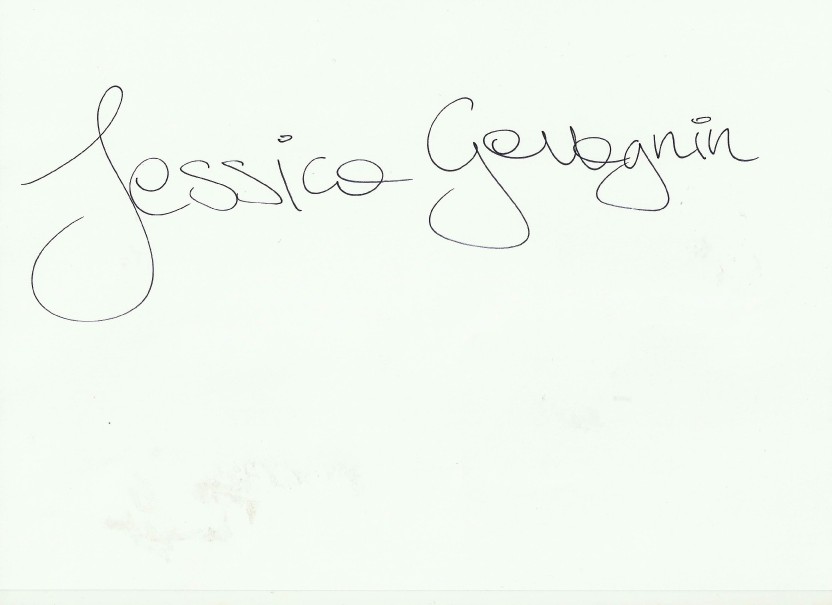 Jessica Gevagnin